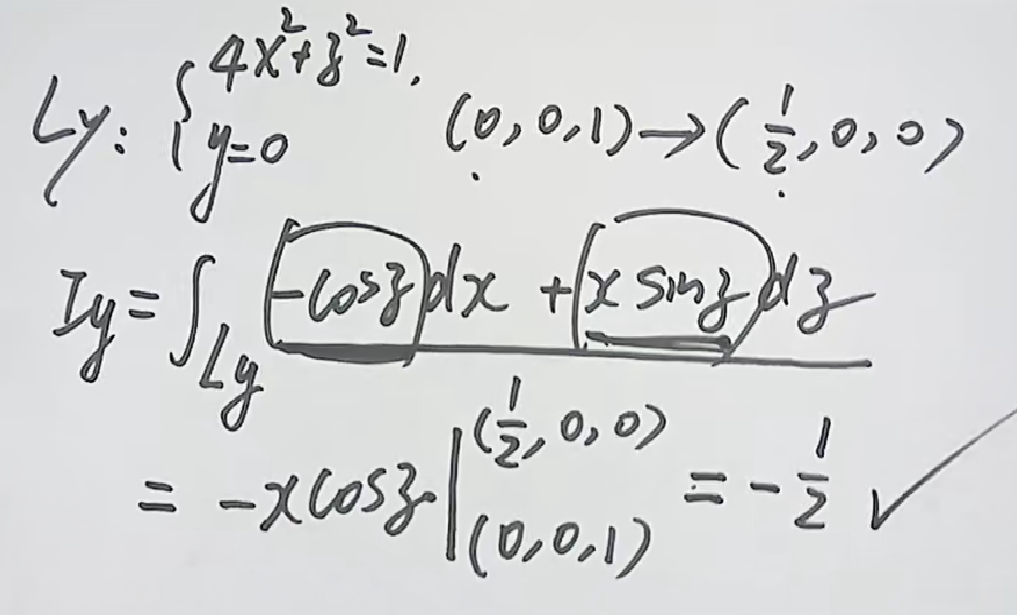 Ly: { 4x²+z²=1, y=0 (0,0,1)→(1/2,0,0)
Iy=∫Ly (-cosz)dx +(x sinz)dz
= -xcosz·|(0,0,1)^(1/2,0,0) = -1/2 ✓